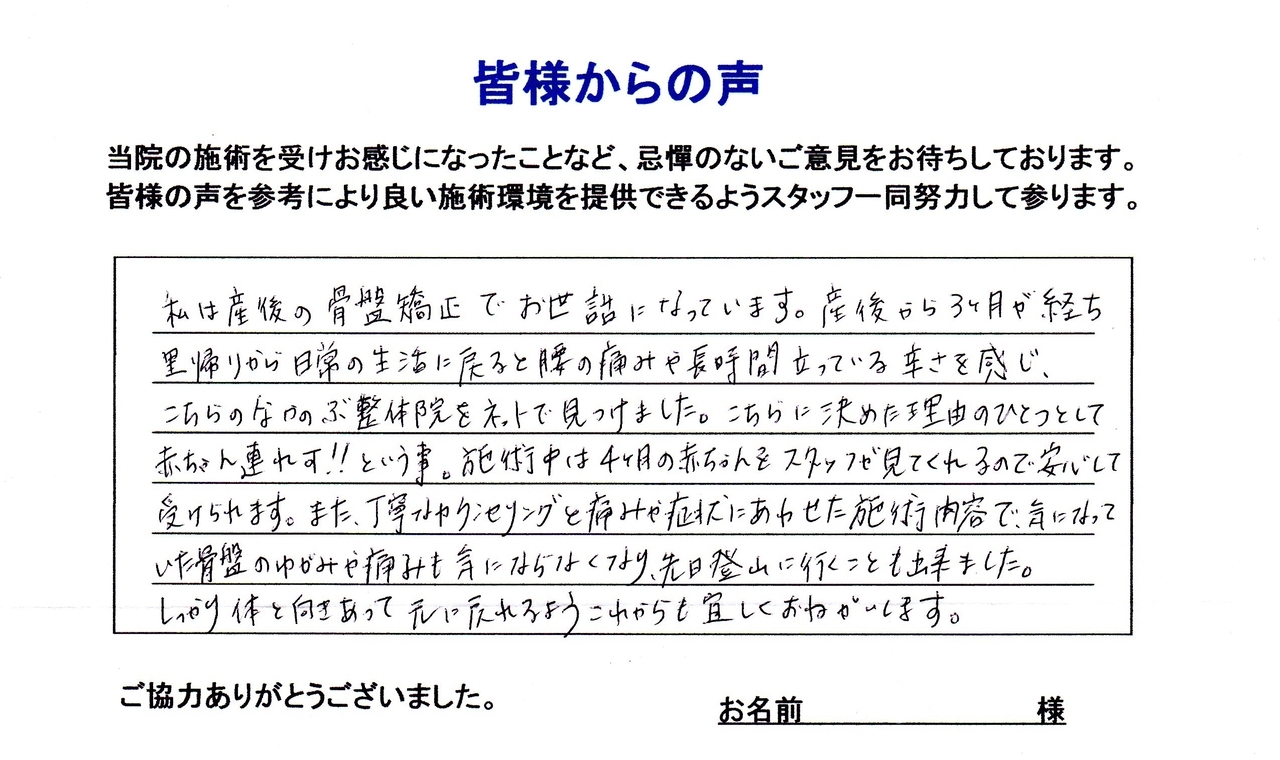 皆様からの声
当院の施術を受けお感じになったことなど、忌憚のないご意見をお待ちしております。
皆様の声を参考により良い施術環境を提供できるようスタッフ一同努力して参ります。
私は産後の骨盤矯正でお世話になっています。産後から3ヶ月が経ち
里帰りから日常の生活に戻ると腰の痛みや長時間立っている辛さを感じ、
こちらのなかのぶ整体院をネットで見つけました。こちらに決めた理由のひとつとして
赤ちゃん連れ可!!という事。施術中は4ヶ月の赤ちゃんをスタッフが見てくれるので安心して
受けられます。また、丁寧なカウンセリングと痛みや症状にあわせた施術内容で、気になって
いた骨盤のゆがみや痛みも気にならなくなり、先日登山に行くことも出来ました。
しっかり体と向きあって元に戻れるようこれからも宜しくおねがいします。
ご協力ありがとうございました。
お名前 様